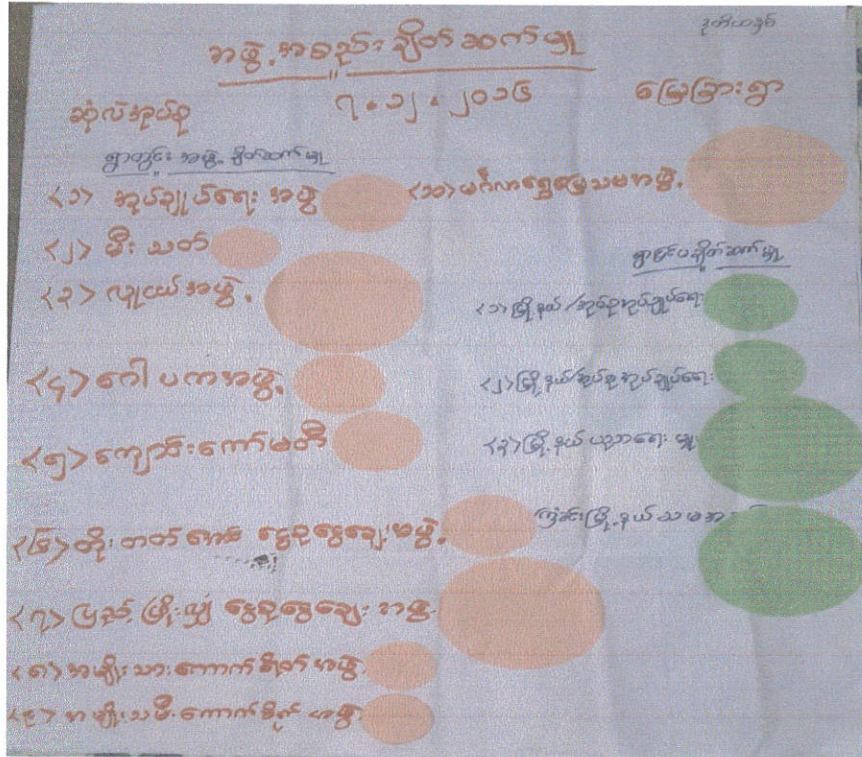 ဒုတိယနှစ်
အဖွဲ့အစည်းချိတ်ဆက်မှု
ဆုံလဲအုပ်စု
၇.၁၂.၂၀၁၆
မြေခြားရွာ
ရွာတွင်းအဖွဲ့ချိတ်ဆက်မှု
<၁> အုပ်ချုပ်ရေးအဖွဲ့
<၂> မီးသတ်
<၃> လူငယ်အဖွဲ့
<၄> ဂေါပကအဖွဲ့
<၅> ကျောင်းကော်မတီ
<၆> တိုးတတ် ငွေစုငွေချေးအဖွဲ့
<၇> ပြည့်ဖြိုးလျှံ ငွေစုငွေချေးအဖွဲ့
<၈> အမျိုးသားကောက်စိုက်အဖွဲ့
<၉> အမျိုးသမီးကောက်စိုက်အဖွဲ့
<၁၀> မင်္ဂလာရွှေမြေသမအဖွဲ့
ရွာပြင်ပချိတ်ဆက်မှု
<၁> မြို့နယ်/အုပ်စုအုပ်ချုပ်ရေး
<၂> မြို့နယ်/အုပ်စုအုပ်ချုပ်ရေး
<၃> မြို့နယ်ယူသာရေးမှူး
မြို့နယ်သမ